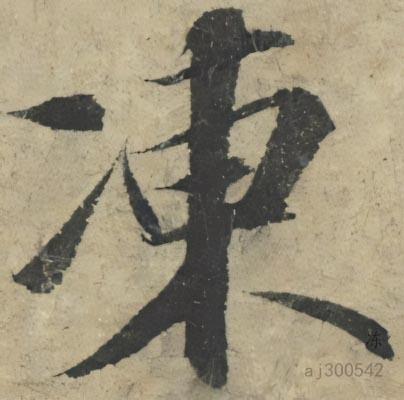 凍
冻
aj300542